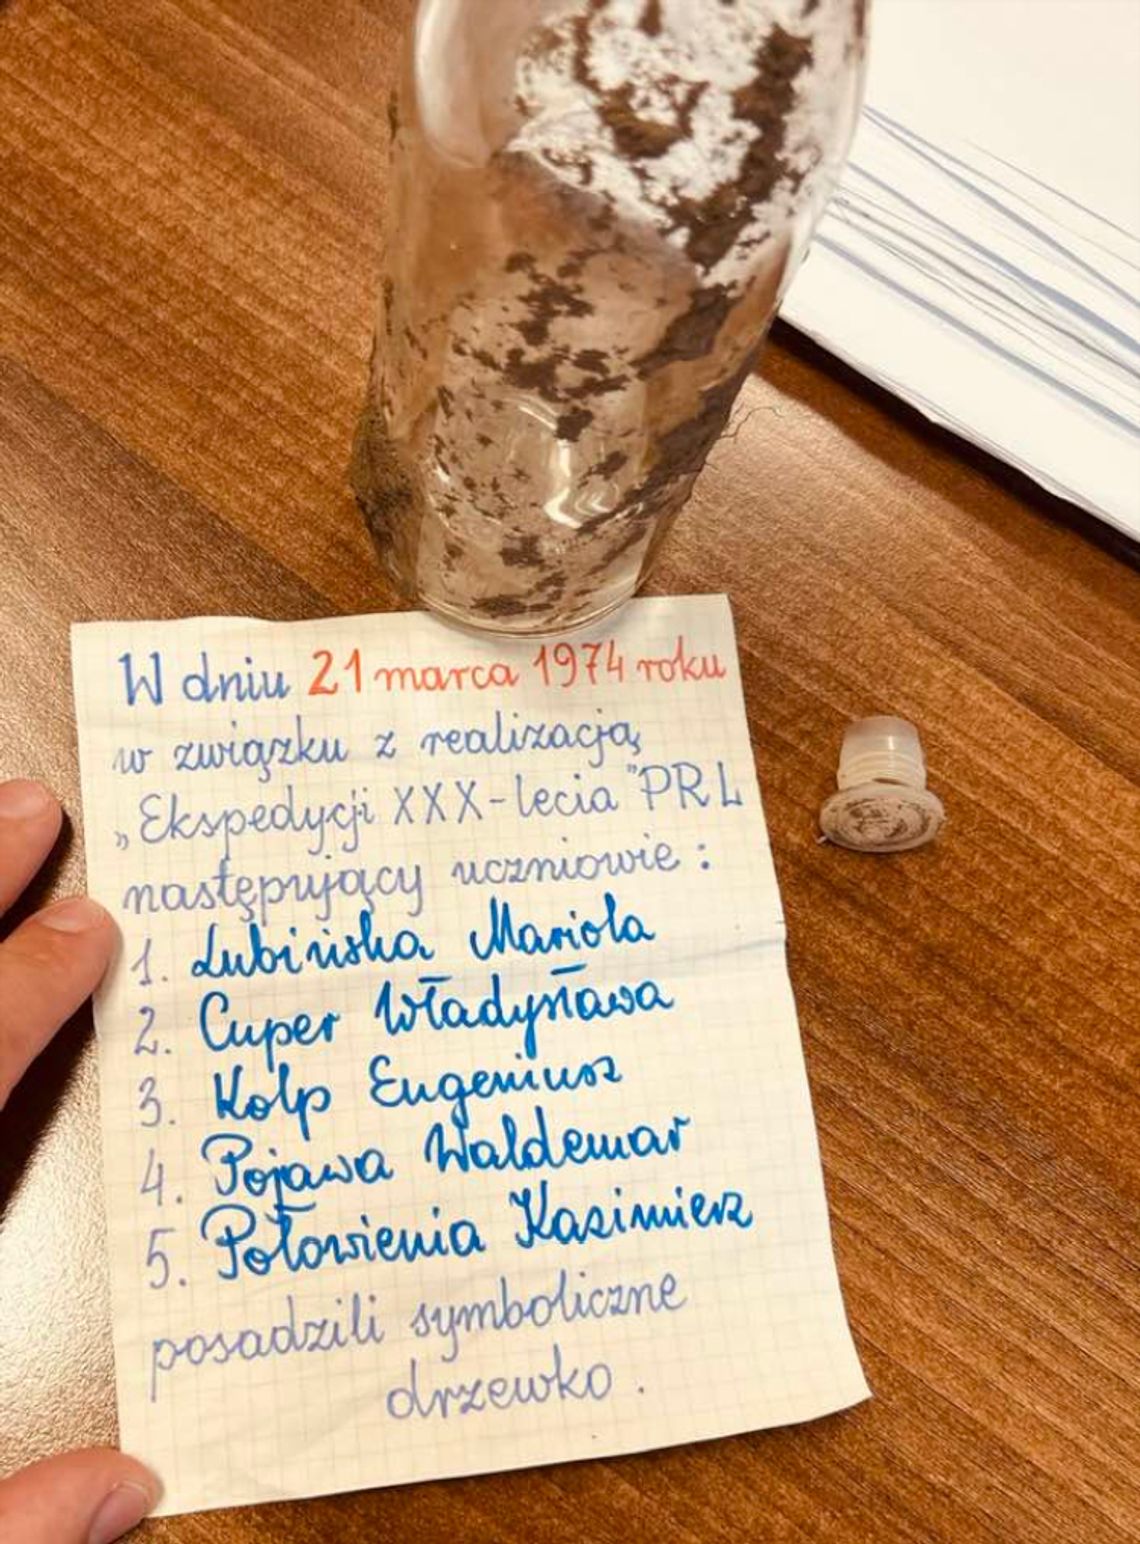 W dniu 21 marca 1974 roku
w związku z realizacją
„Ekspedycji XXX-lecia "PRL
następujący uczniowie :
1. Lubińska Mariola
2. Cuper Władysława
3. Kolp Eugeniusz
4. Pojawa Waldemar
5. Połowienia Kazimierz
posadzili symboliczne
drzewko .